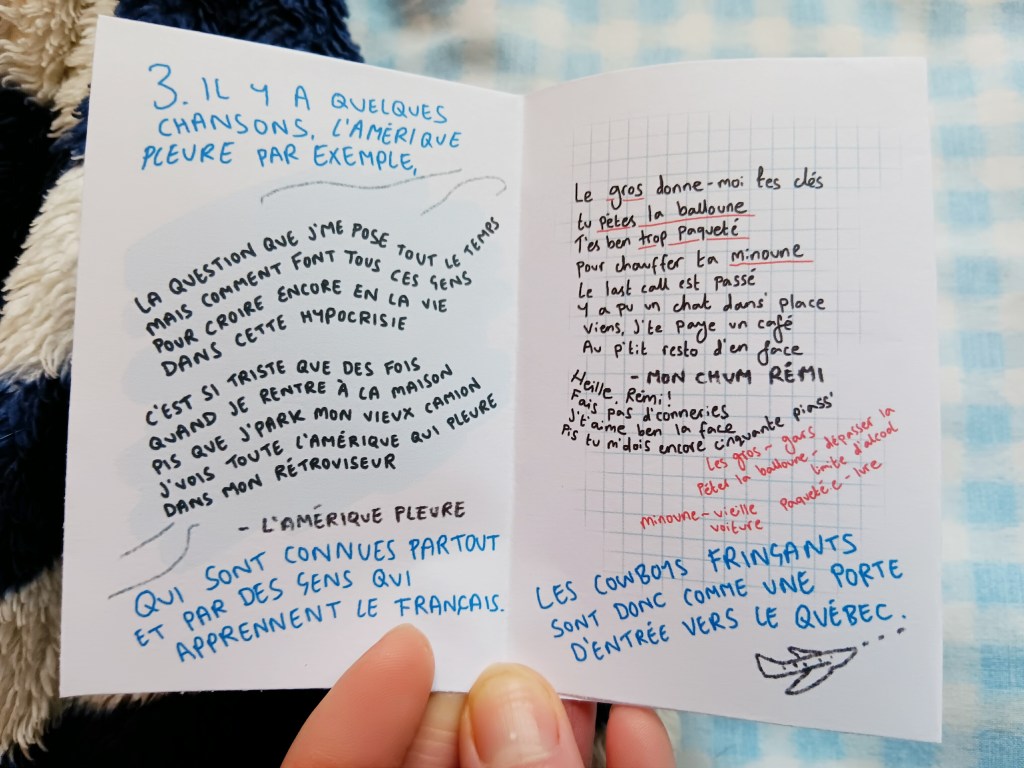 3. IL Y A QUELQUES
CHANSONS, L'AMÉRIQUE
PLEURE PAR EXEMPLE,
LA QUESTION QUE J'ME POSE TOUT LE TEMPS
MAIS COMMENT FONT TOUS CES GENS
POUR CROIRE ENCORE EN LA VIE
DANS CETTE HYPOCRISIE
C'EST SI TRISTE QUE DES FOIS
QUAND JE RENTRE À LA MAISON
PIS QUE J'PARK MON VIEUX CAMION
J'VOIS TOUTE L'AMÉRIQUE QUI PLEURE
DANS MON RÉTROVISEUR
- L'AMÉRIQUE PLEURE
QUI SONT CONNUES PARTOUT
ET PAR DES GENS QUI
APPRENNENT LE FRANÇAIS.
Le gros donne-moi tes clés
tu pètes la balloune
T'es ben trop paqueté
pour chauffer ta minoune
Le last call est passé
Y a pu un chat dans' place
Viens, j'te paye un café
Au p'tit resto d'en face
- MON CHUM RÉMI
Heille, Rémi!
Fais pas d'conneries
J't'aime ben la face
Pis tu m'dois encore cinquante piass'
Les gros - gars
Péter la balloune - dépasser la
limite d'alcool
paqueté·e - ivre
minoune - vieille
voiture
LES COWBOYS FRINGANTS
SONT DONC COMME UNE PORTE
D'ENTRÉE VERS LE QUÉBEC.